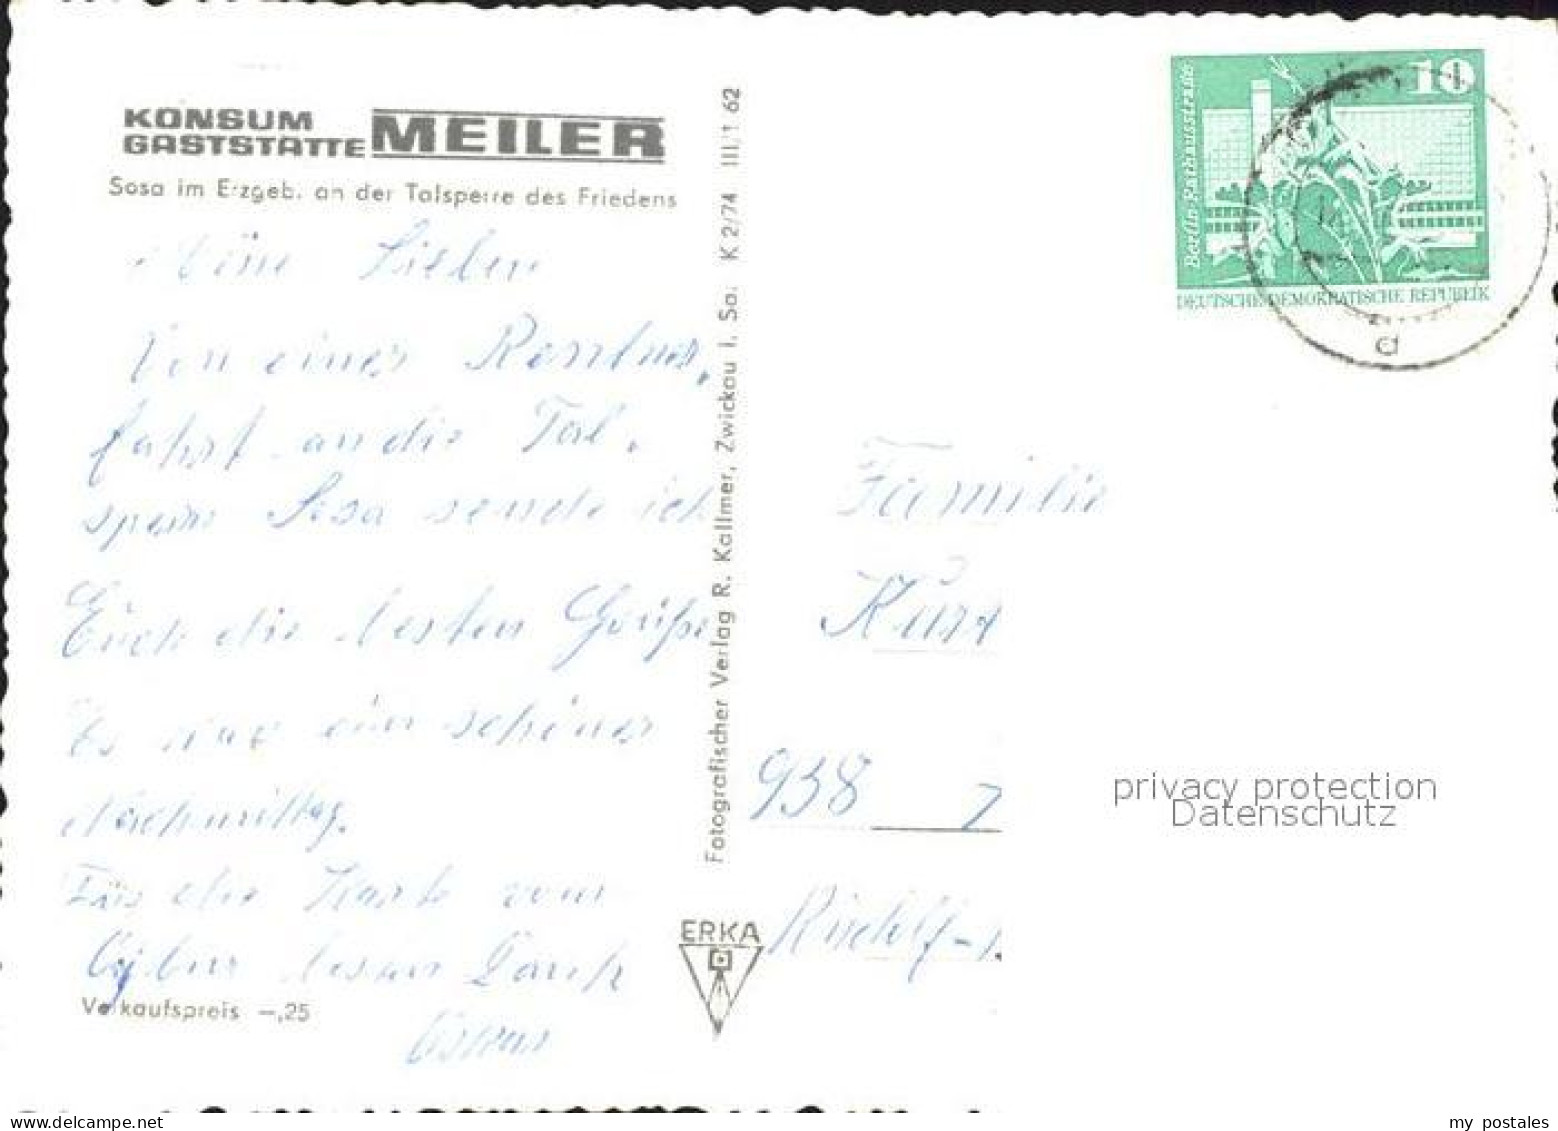 KONSUM
GASTSTÄTTE MEILER
Sosa im Erzgeb. an der Talsperre des Friedens
Lieben
Von einer Rentner,
fahrt an die Tal,
sperre Sosa sende ich
Euch die besten Grüße
Es war ein schöner
Nachmittag.
Für die Karte vom
Dank
Verkaufspreis –,25
Fotografischer Verlag R. Kallmer, Zwickau i. Sa. K 2/74 III/1 62
ERKA
10
Berlin, Rathausstraße
DEUTSCHE DEMOKRATISCHE REPUBLIK
d
Familie
Kurt
938 Z
Rudolf-
privacy protection
Datenschutz
www.delcampe.net
my postales